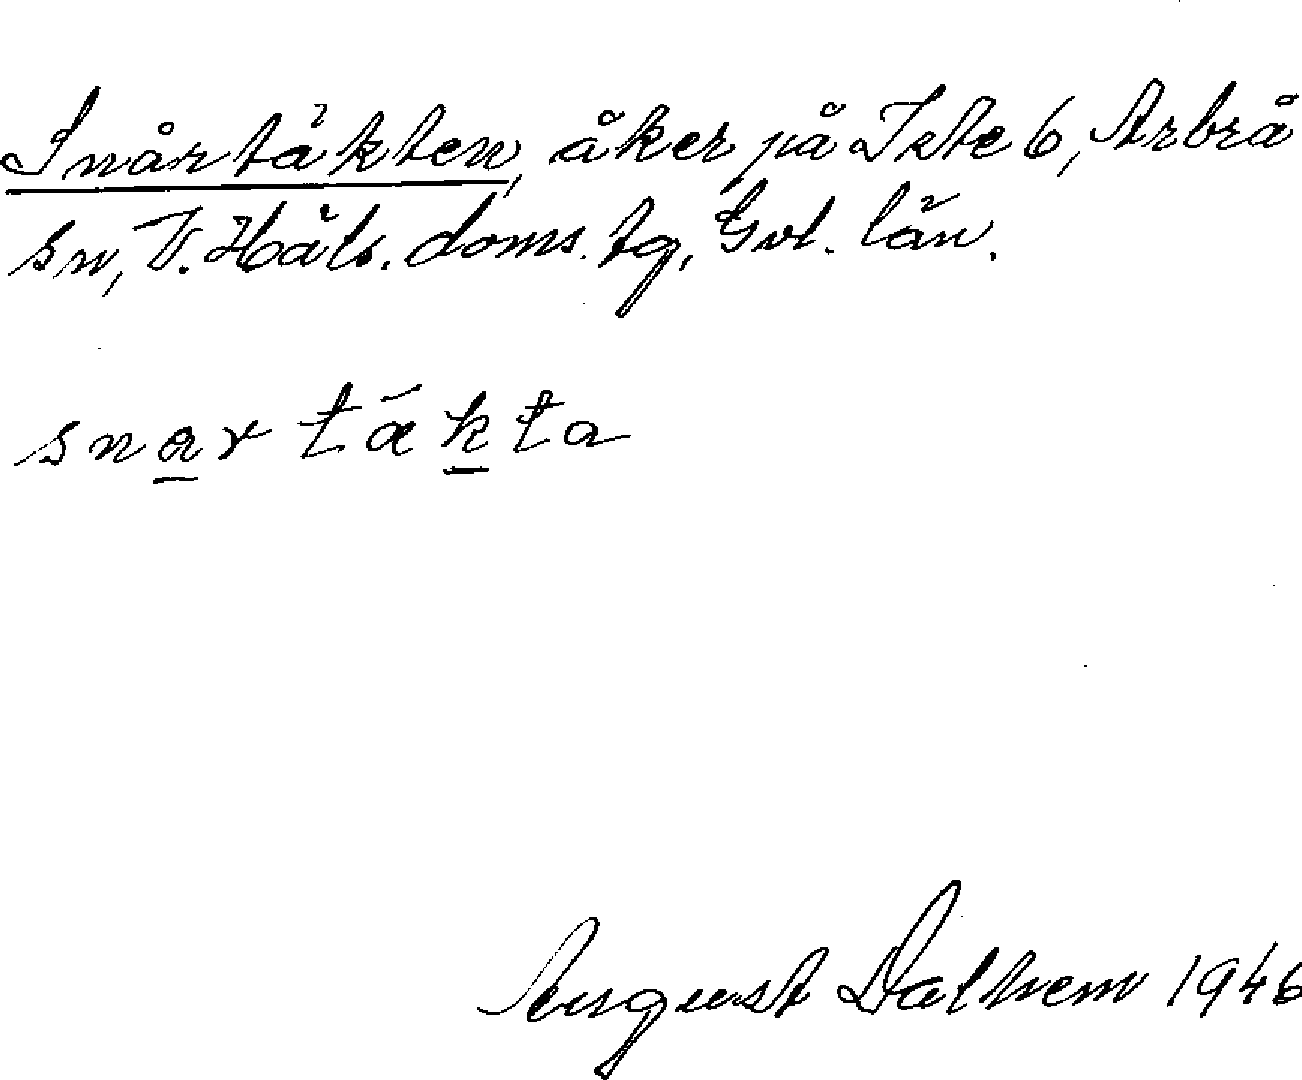 Snårtäkten, åker på Iste 6, Arbrå
sn, V. Häls. doms. tg, Gvl. län.
snar täkta
August Dalhem 1946